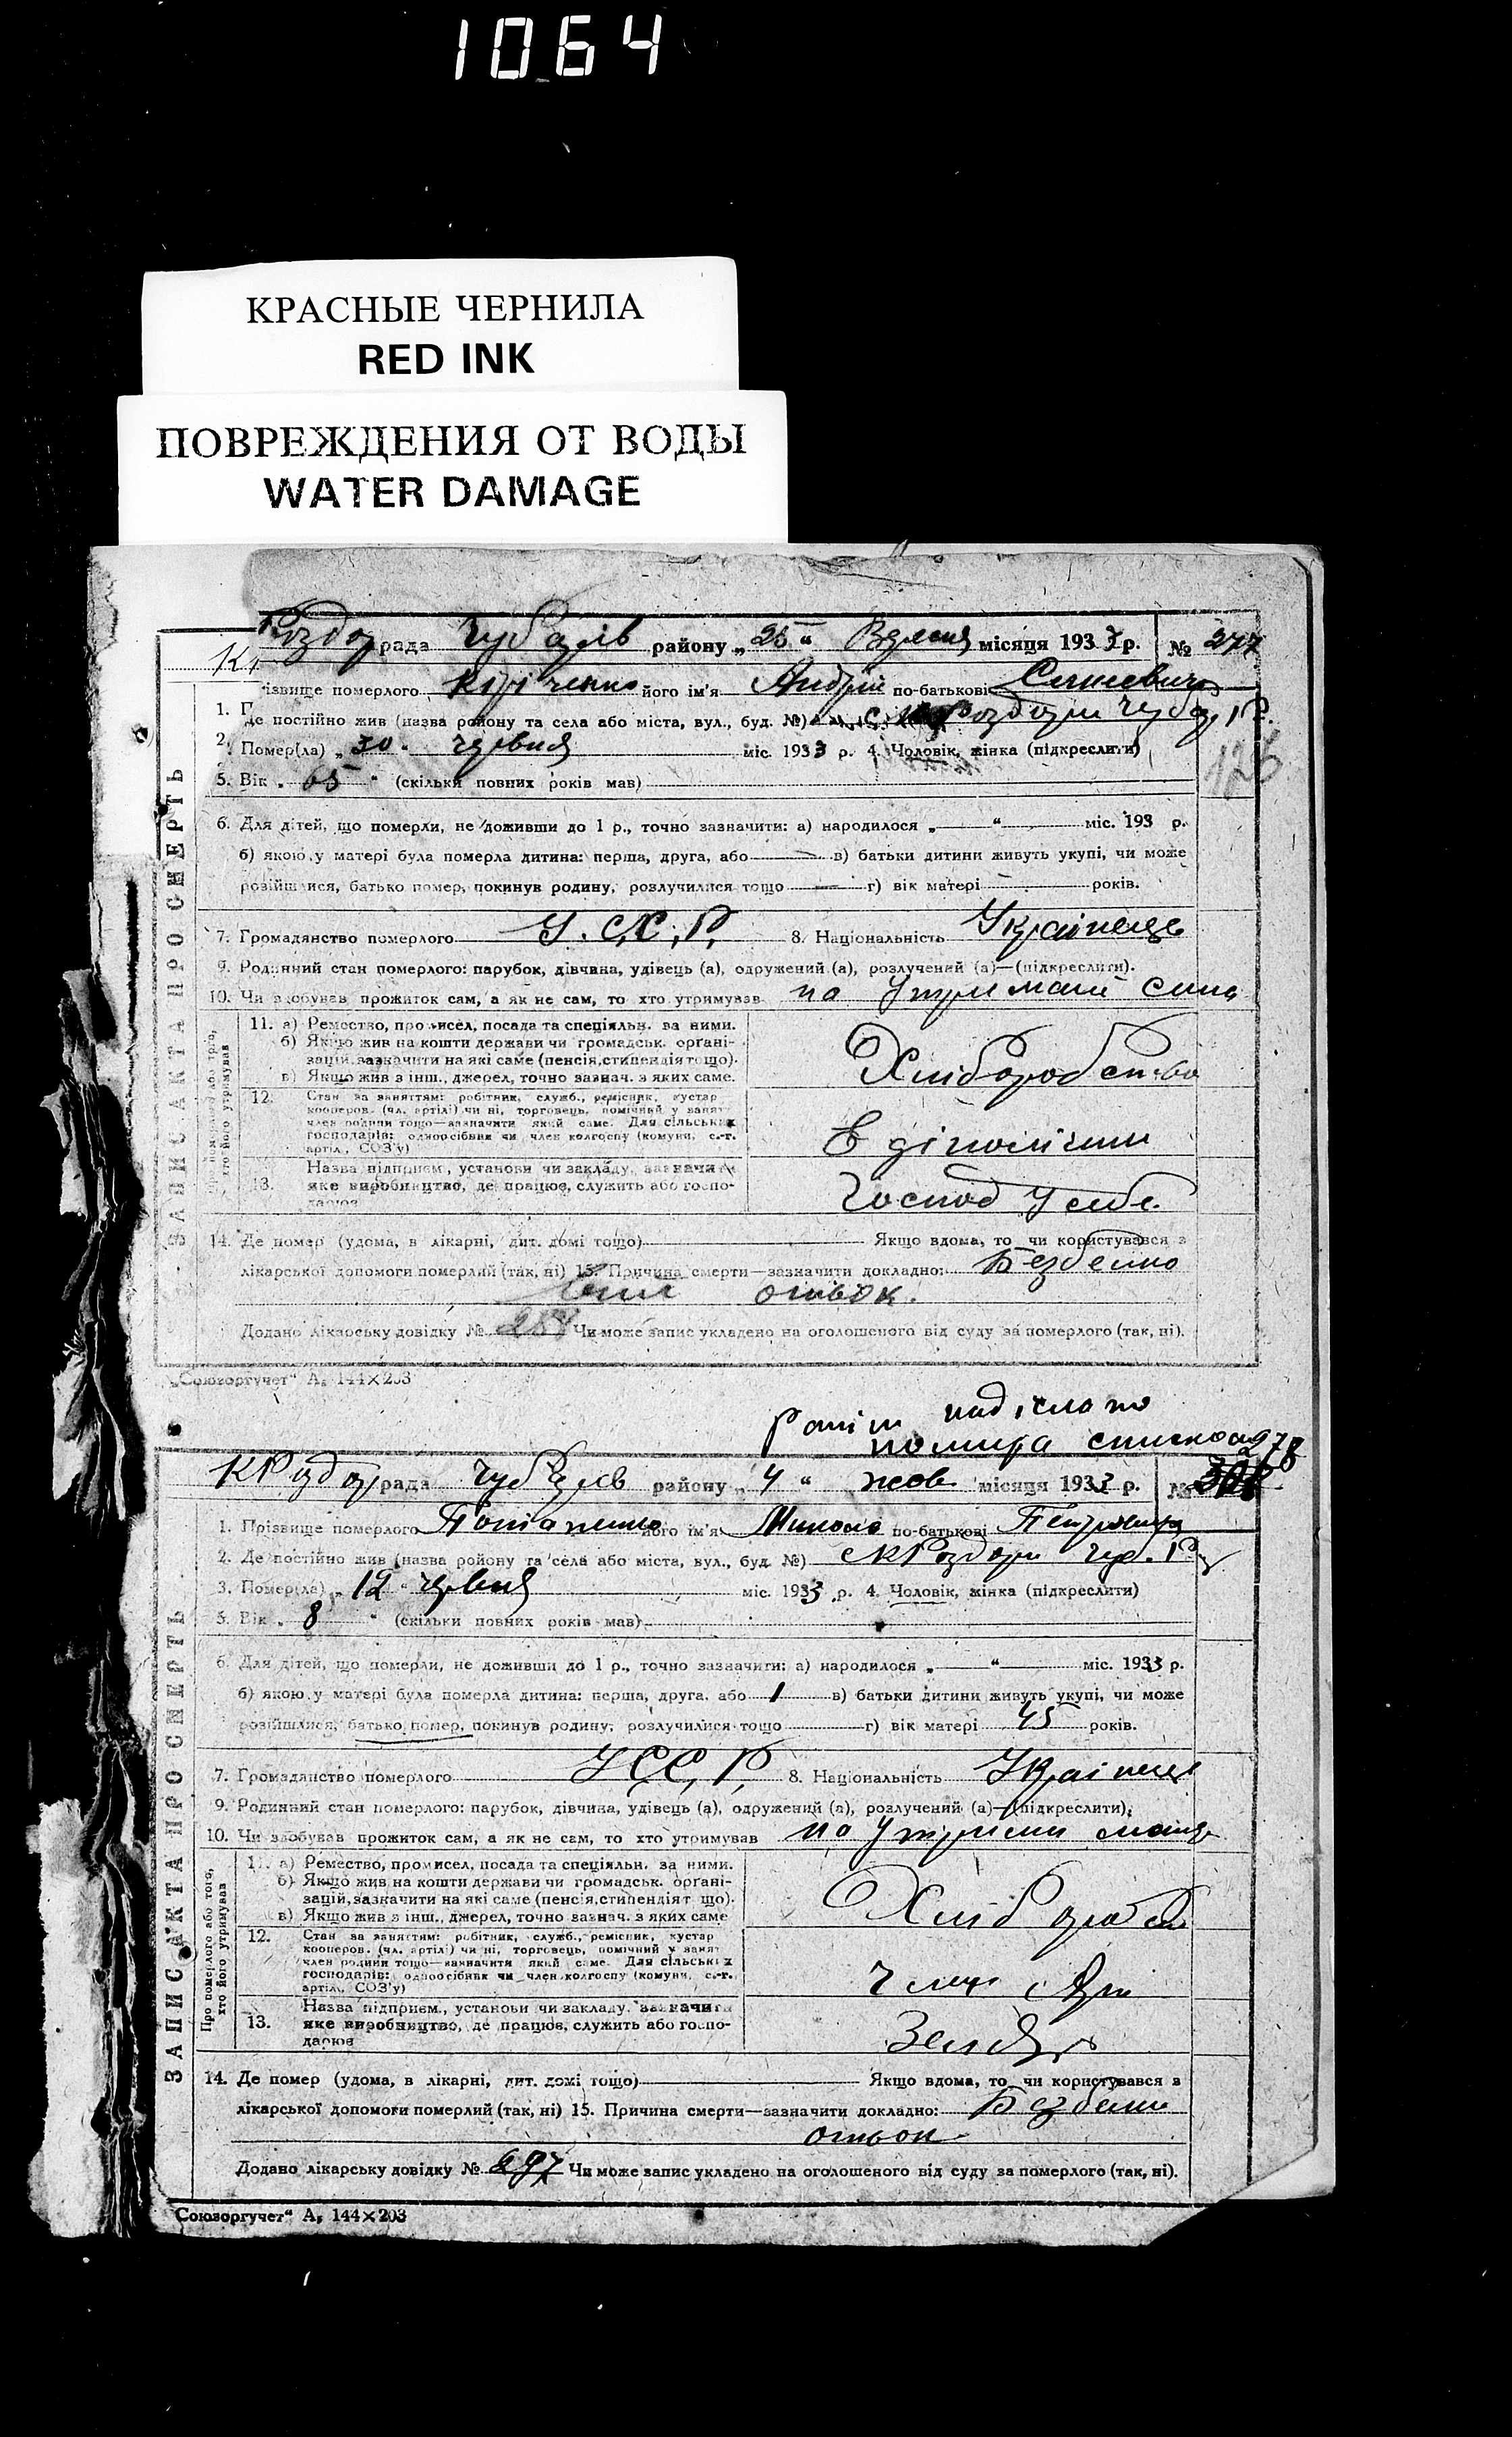 1064
КРАСНЫЕ ЧЕРНИЛА
RED INK
ПОВРЕЖДЕНИЯ ОТ ВОДЫ
WATER DAMAGE
ЗАПИС АКТА ПРО СМЕРТЬ
Роздор рада Чубарів району „25“ Вересня місяця 1933 р. № 277
різвище померлого Кіріченко його ім'я Андрій по-батькові
1. П
де постійно жив (назва району та села або міста, вул., буд. №) Роздори Чуб. Р.
2. Помер(ла) „30“ червня міс. 1933 р. 4. Чоловік, жінка (підкреслити)
126
5. Вік „65“ (скільки повних років мав)
6. Для дітей, що померли, не доживши до 1 р., точно зазначити: а) народилося „—“ міс. 193 р.
б) якою у матері була померла дитина: перша, друга, або — в) батьки дитини живуть укупі, чи може
розійшлися, батько помер, покинув родину, розлучилися тощо — г) вік матері років.
7. Громадянство померлого У.С.С.Р. 8. Національність Українець
9. Родинний стан померлого: парубок, дівчина, удівець (а), одружений (а), розлучений (а)—(підкреслити).
10. Чи здобував прожиток сам, а як не сам, то хто утримував на утримані сина
Про померлого або того, хто його утримував
11. а) Ремество, промисел, посада та спеціяльн. за ними.
б) Якщо жив на кошти держави чи громадськ. органі-
зацій, зазначити на які саме (пенсія, стипендія тощо).
в) Якщо жив з інш., джерел, точно зазнач. з яких саме.
Хліборобство
12. Стан за заняттям: робітник, служб., ремісник, кустар
кооперов. (чл. артілі) чи ні, торговець, помічний у занят
член родини тощо—зазначити який саме. Для сільських
господарів: одноосібник чи член колгоспу (комуни, с.-г.
артіл., СОЗ'у)
13. Назва підприєм., установи чи закладу, зазначити
яке виробництво, де працює, служить або госпо-
дарює
Господ у себе
14. Де помер (удома, в лікарні, дит. домі тощо) Якщо вдома, то чи користувався з
лікарської допомоги померлий (так, ні) 15. Причина смерти—зазначити докладно: Безбелко
отьок.
Додано лікарську довідку № Чи може запис укладено на оголошеного від суду за померлого (так, ні).
„Союзоргучет“ А₅ 144×203
раніш надіслано
278
ЗАПИС АКТА ПРО СМЕРТЬ
КРоздор рада Чубарів району „4“ жов місяця 1933 р. №
1. Прізвище померлого Потапенко його ім'я Микола по-батькові Петрович
2. Де постійно жив (назва району та села або міста, вул., буд. №) с КРоздори Чуб. Р.
3. Помер(ла) „12“ червня міс. 1933 р. 4. Чоловік, жінка (підкреслити)
5. Вік „8“ (скільки повних років мав)
6. Для дітей, що померли, не доживши до 1 р., точно зазначити: а) народилося „—“ міс. 1933 р.
б) якою у матері була померла дитина: перша, друга, або 1 в) батьки дитини живуть укупі, чи може
розійшлися, батько помер, покинув родину, розлучилися тощо г) вік матері 45 років.
7. Громадянство померлого УССР. 8. Національність Українець
9. Родинний стан померлого: парубок, дівчина, удівець (а), одружений (а), розлучений (а)—(підкреслити).
10. Чи здобував прожиток сам, а як не сам, то хто утримував на утримани
Про померлого або того, хто його утримував
11. а) Ремество, промисел, посада та спеціяльн. за ними.
б) Якщо жив на кошти держави чи громадськ. органі-
зацій, зазначити на які саме (пенсія, стипендія т що).
в) Якщо жив з інш., джерел, точно зазнач. з яких саме
Хлібороб
12. Стан за заняттям: робітник, служб., ремісник, кустар
кооперов. (чл. артілі) чи ні, торговець, помічний у занят
член родини тощо—зазначити який саме. Для сільських
господарів: одноосібник чи член колгоспу (комуни, с.-г.
артіл., СОЗ'у)
13. Назва підприєм., установи чи закладу, зазначити
яке виробництво, де працює, служить або госпо-
дарює
14. Де помер (удома, в лікарні, дит. домі тощо) Якщо вдома, то чи користувався з
лікарської допомоги померлий (так, ні) 15. Причина смерти—зазначити докладно: Безбелк
отьок
Додано лікарську довідку № 297 Чи може запис укладено на оголошеного від суду за померлого (так, ні).
Союзоргучет“ А₅ 144×203